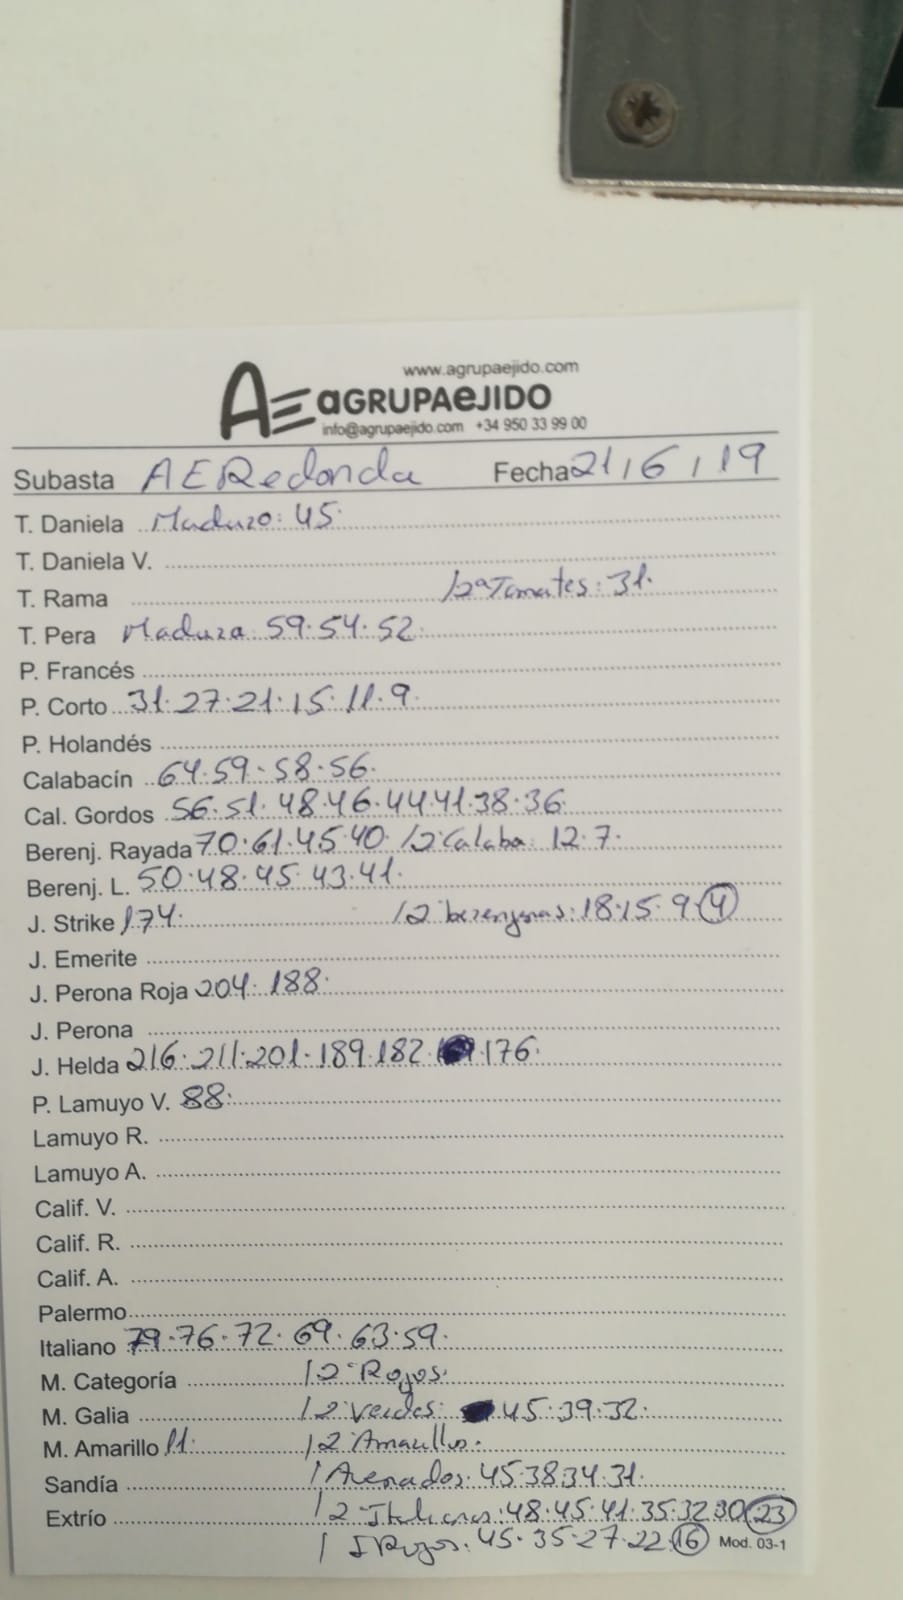 www.agrupaejido.com
AE aGRUPAeJIDO
info@agrupaejido.com +34 950 33 99 00
Subasta AERedonda Fecha 21/6/19
T. Daniela Maduro: 45.
T. Daniela V.
T. Rama /2ª Tomates: 31.
T. Pera Madura: 59.54.52.
P. Francés
P. Corto 31.27.21.15.11.9.
P. Holandés
Calabacín 64.59.58.56.
Cal. Gordos 56.51.48.46.44.41.38.36.
Berenj. Rayada 70.61.45.40. /2 Calaba: 12.7.
Berenj. L. 50.48.45.43.41.
J. Strike 174. /2 berenjenas: 18.15.9.4
J. Emerite
J. Perona Roja 204. 188.
J. Perona
J. Helda 216.211.201.189.182. 176.
P. Lamuyo V. 88.
Lamuyo R.
Lamuyo A.
Calif. V.
Calif. R.
Calif. A.
Palermo
Italiano 79.76.72.69.63.59.
M. Categoría /2ª Rojos.
M. Galia /2 Verdes: 45.39.32.
M. Amarillo 11. /2 Amarillos.
Sandía / Asenados: 45.38.34.31.
Extrío /2 Italianos: 48.45.41.35.32.30.23
/ I Rojos: 45.35.27.22.16 Mod. 03-1